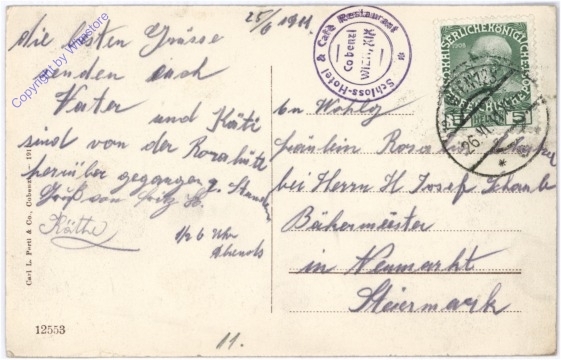 25/6 1911
die besten Grüsse
senden euch
Vater und Käti
sind von der
herüber gegangen 2. Stunden
Gruß von Fritz
Käthe
1/2 6 Uhr
Abends
Schloss-Hotel & Café Restaurant
Cobenzl
WIEN, XIX
KAISERLICHE KÖNIGLICHE
1908
5 5
26.VI.11
An Wohlg
Fräulein Rosa
bei Herrn H Josef Schaub
Bäkermeister
in Neumarkt
Steiermark
Carl L. Postl & Co., Cobenzl
12553
11.
Copyright by Whitestore